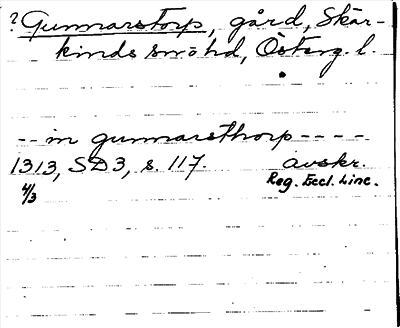 ? Gunnarstorp, gård, Skär-
kinds sn o hd, Österg. l.
-- in gunnarsthorp ----
1313, SD3, s. 117. avskr.
4/3 Reg. Eccl. Linc.